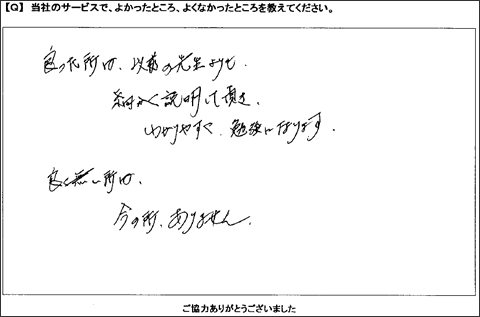 【Q】 当社のサービスで、よかったところ、よくなかったところを教えてください。
良った所は、以前の先生よりも、
細かく説明して頂き、
わかりやすく、勉強になります。
良く無い所は、
今の所、ありません。
ご協力ありがとうございました